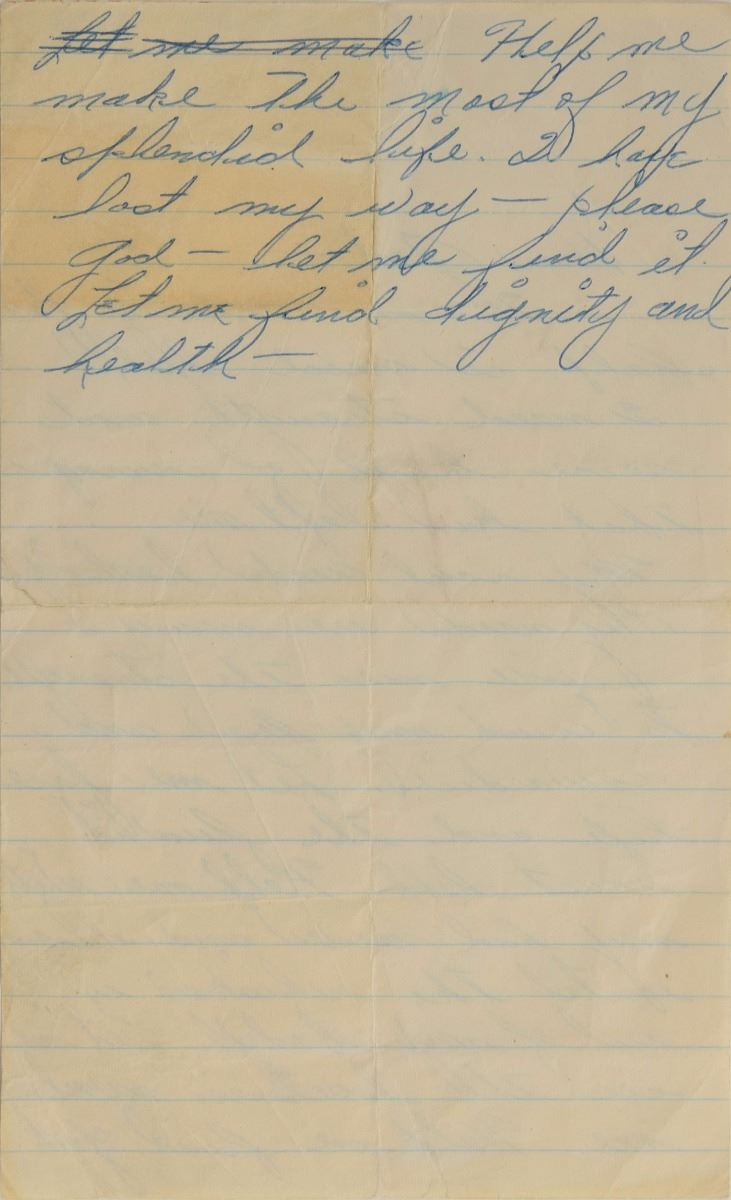 Let me make Help me
make The most of my
splendid life. I have
lost my way — please
God — let me find it.
Let me find dignity and
health —